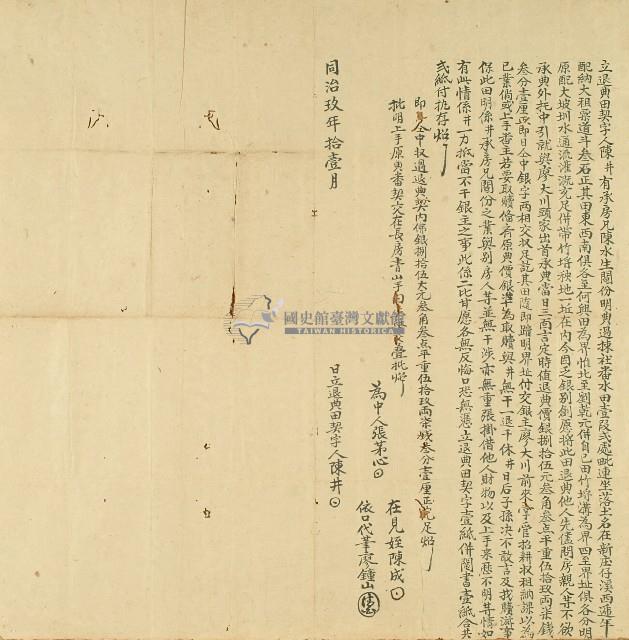 立退典田契字人陳井有承房兄陳水生鬮份明典過揀社番水田壹段弍處毗連坐落土名在新庄仔溪西運年
配納大租粟道斗叁石正其田東西南俱各至何興田為界惟北至劉乾元併自己田竹埒溝為界四至界址俱各分明
原配大坡圳水通流灌溉充足併帶竹埒秧地一坵在內今因乏銀別創愿將此田退典他人先儘問房親人等不欲
承典外托中引就與廖大川頭家出首承典當日三面言定時值退典價銀捌拾伍元叁角叁点平重伍拾玖兩柒錢
叁分壹厘正即日仝中銀字兩相交收足訖其田隨即踏明界址付交銀主廖大川前來掌管招耕收租納課以為
己業倘或上手番主若要取贖備齊原典價銀準為取贖與井無干一退千休井日后子孫決不敢言及找贖滋事
保此田明係井承房兄鬮份之業與別房人等並無干涉亦無重張掛借他人財物以及上手來歷不明等情如
有此情係井一力抵當不干銀主之事此係二比甘愿各無反悔口恐無憑立退典田契字壹紙併鬮書壹紙合共
弍紙付執存炤
即日仝中收過退典契內佛銀捌拾伍大元叁角叁点平重伍拾玖兩柒錢叁分壹厘正完足炤
批明上手原典番契交在長房青山手內 壹批炤
為中人張第心
在見姪陳成
依口代筆廖鐘山
同治玖年拾壹月 日立退典田契字人陳井
國史館臺灣文獻館
TAIWAN HISTORICA